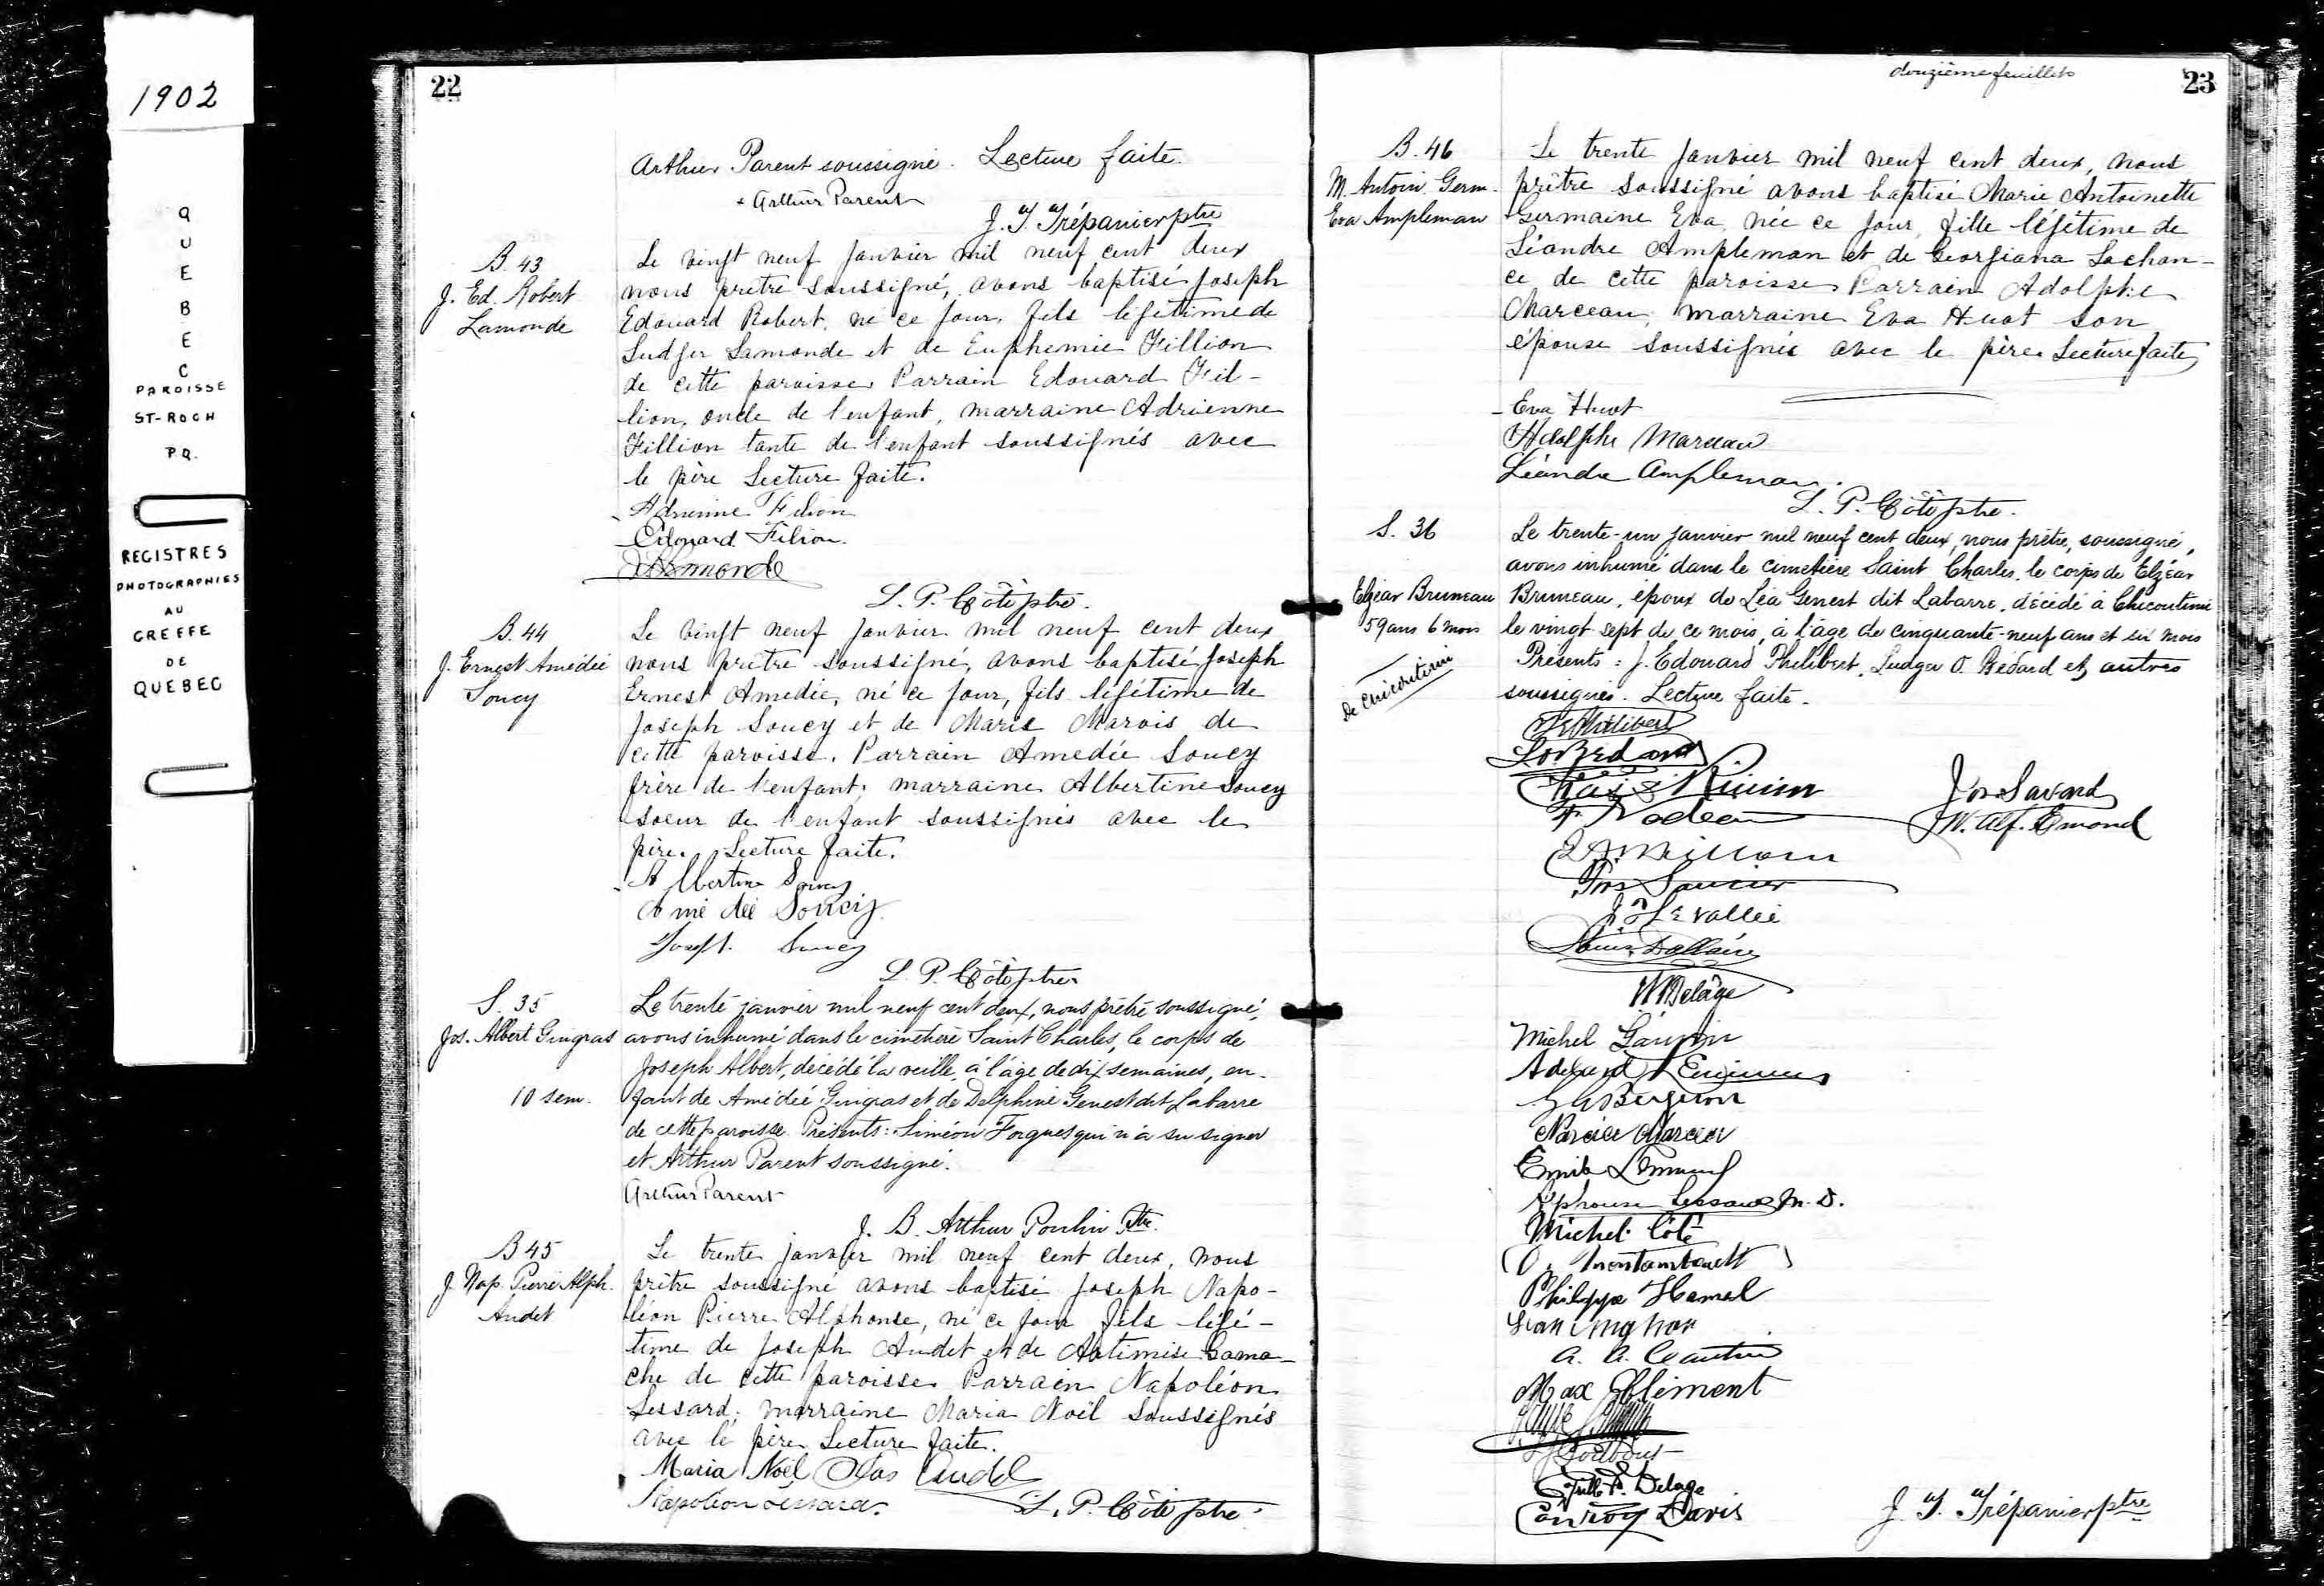 1902
QUEBEC
PAROISSE
ST-ROCH
P.Q.
REGISTRES
PHOTOGRAPHIES
AU
GREFFE
DE
QUEBEC
22
Arthur Parent soussigné. Lecture faite.
Arthur Parent
J. T. Trépanier ptre
B. 43
J. Ed. Robert
Lamonde
Le vingt neuf Janvier mil neuf cent deux
nous prêtre soussigné, avons baptisé Joseph
Edouard Robert, né ce jour, fils légitime de
Ludger Lamonde et de Euphemie Fillion
de cette paroisse, Parrain Edouard Fil-
lion, oncle de l'enfant, marraine Adrienne
Fillion tante de l'enfant soussignés avec
le père Lecture faite.
Adrienne Filion
Edouard Filion.
Lamonde
L. P. Côté ptre.
B. 44
J. Ernest Amédée
Soucy
Le vingt neuf Janvier mil neuf cent deux
nous prêtre soussigné, avons baptisé Joseph
Ernest Amedée, né ce jour, fils légitime de
Joseph Soucy et de Marie Marois de
cette paroisse. Parrain Amedée Soucy
frère de l'enfant; marraine Albertine Soucy
soeur de l'enfant soussignés avec le
père. Lecture faite.
Albertine Soucy
Amédée Soucy
Joseph Soucy
L. P. Côté ptre
S. 35
Jos. Albert Gingras
10 sem.
Le trente janvier mil neuf cent deux, nous prêtre soussigné,
avons inhumé dans le cimetière Saint Charles, le corps de
Joseph Albert, décédé la veille, à l'âge de dix semaines, en-
fant de Amédée Gingras et de Delphine Genest dit Labarre
de cette paroisse. Présents: Siméon Forgues qui n'a su signer
et Arthur Parent soussigné.
Arthur Parent
J. B. Arthur Poulin Ptre.
B 45
J. Nap. Pierre Alph.
Audet
Le trente janvier mil neuf cent deux, nous
prêtre soussigné avons baptisé Joseph Napo-
léon Pierre Alphonse, né ce jour fils légi-
time de Joseph Audet et de Artimise Gama-
che de cette paroisse Parrain Napoléon
Lessard; marraine Maria Noël soussignés
avec le père Lecture faite.
Maria Noël Jos Audet
Napoléon Lessard.
L. P. Côté ptre
douzième feuillet
23
B. 46
M. Antoin. Germ.
Eva Ampleman
Le trente Janvier mil neuf cent deux, nous
prêtre soussigné avons baptisé Marie Antoinette
Germaine Eva, née ce jour, fille légitime de
Léandre Ampleman et de Georgiana Lachan-
ce de cette paroisse Parrain Adolphe
Marceau, marraine Eva Huot son
épouse soussignés avec le père Lecture faite
Eva Huot
Adolphe Marceau
Léandre Ampleman.
L. P. Côté ptre.
S. 36
Elzéar Bruneau
59 ans 6 mois
De Chicoutimi
Le trente-un janvier mil neuf cent deux, nous prêtre, soussigné,
avons inhumé dans le cimetière Saint Charles, le corps de Elzéar
Bruneau, époux de Léa Genest dit Labarre, décédé à Chicoutimi
le vingt sept de ce mois, à l'âge de cinquante-neuf ans et six mois
Présents: J. Edouard Philibert, Ludger O. Bédard et autres
soussignés. Lecture faite.
Philibert
L. O. Bedard
Jos Savard
F. Nadeau
W. Alf. Emond
Jos Saucier
Vallée
Louis Dallaire
Delâge
Michel Gauvin
Bergeron
Narcisse Mercier
Alphonse Lessard M. D.
Michel Côté
O. Montambault
Philippe Hamel
Max Clément
Delage
Conroy Davis
J. T. Trépanier ptre